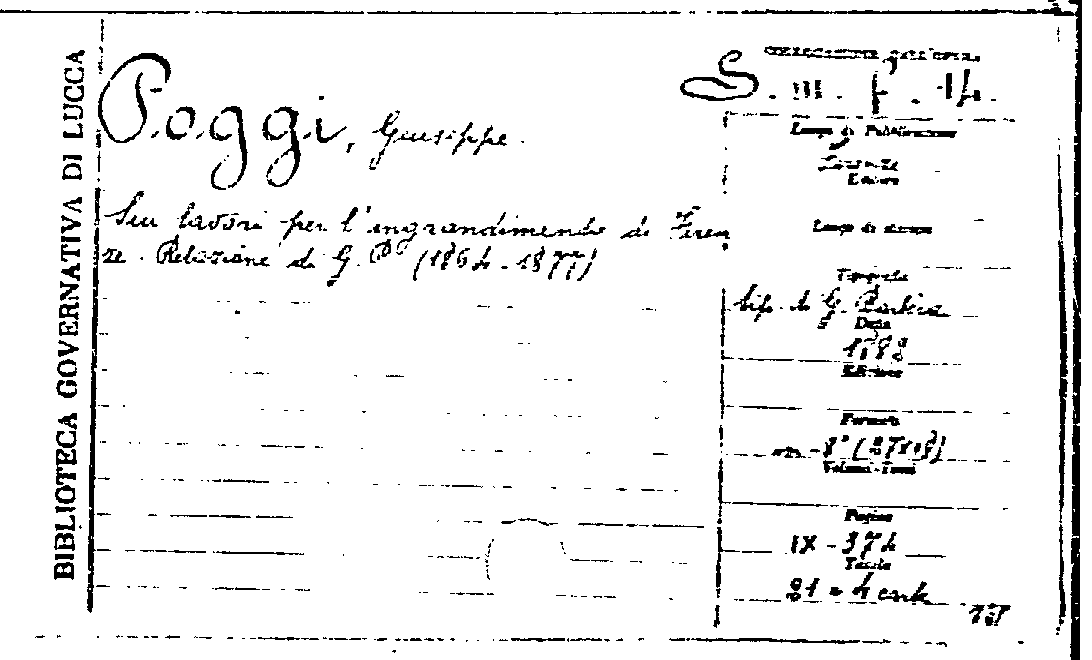 BIBLIOTECA GOVERNATIVA DI LUCCA
Poggi, Giuseppe.
Sui lavori per l'ingrandimento di Firen
ze. Relazione di G. P. (1864-1877)
COLLOCAZIONE DELL'OPERA
Luogo di Pubblicazione
Firenze
Editore
Luogo di stampa
Tipografia
tip. di G. Barbèra
Data
Edizione
Formato
in-8° (27x18)
Volumi-Tomi
Pagine
IX-374
Tavole
21 e 4 carte